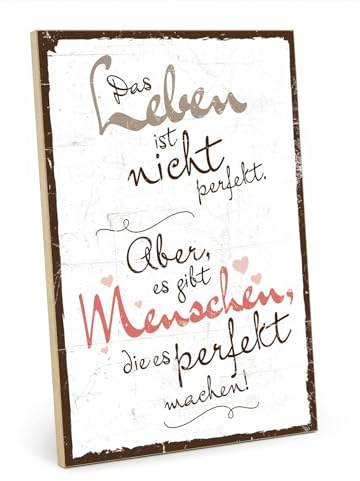 Das
Leben
ist
nicht
perfekt.
Aber,
es gibt
Menschen,
die es perfekt
machen!